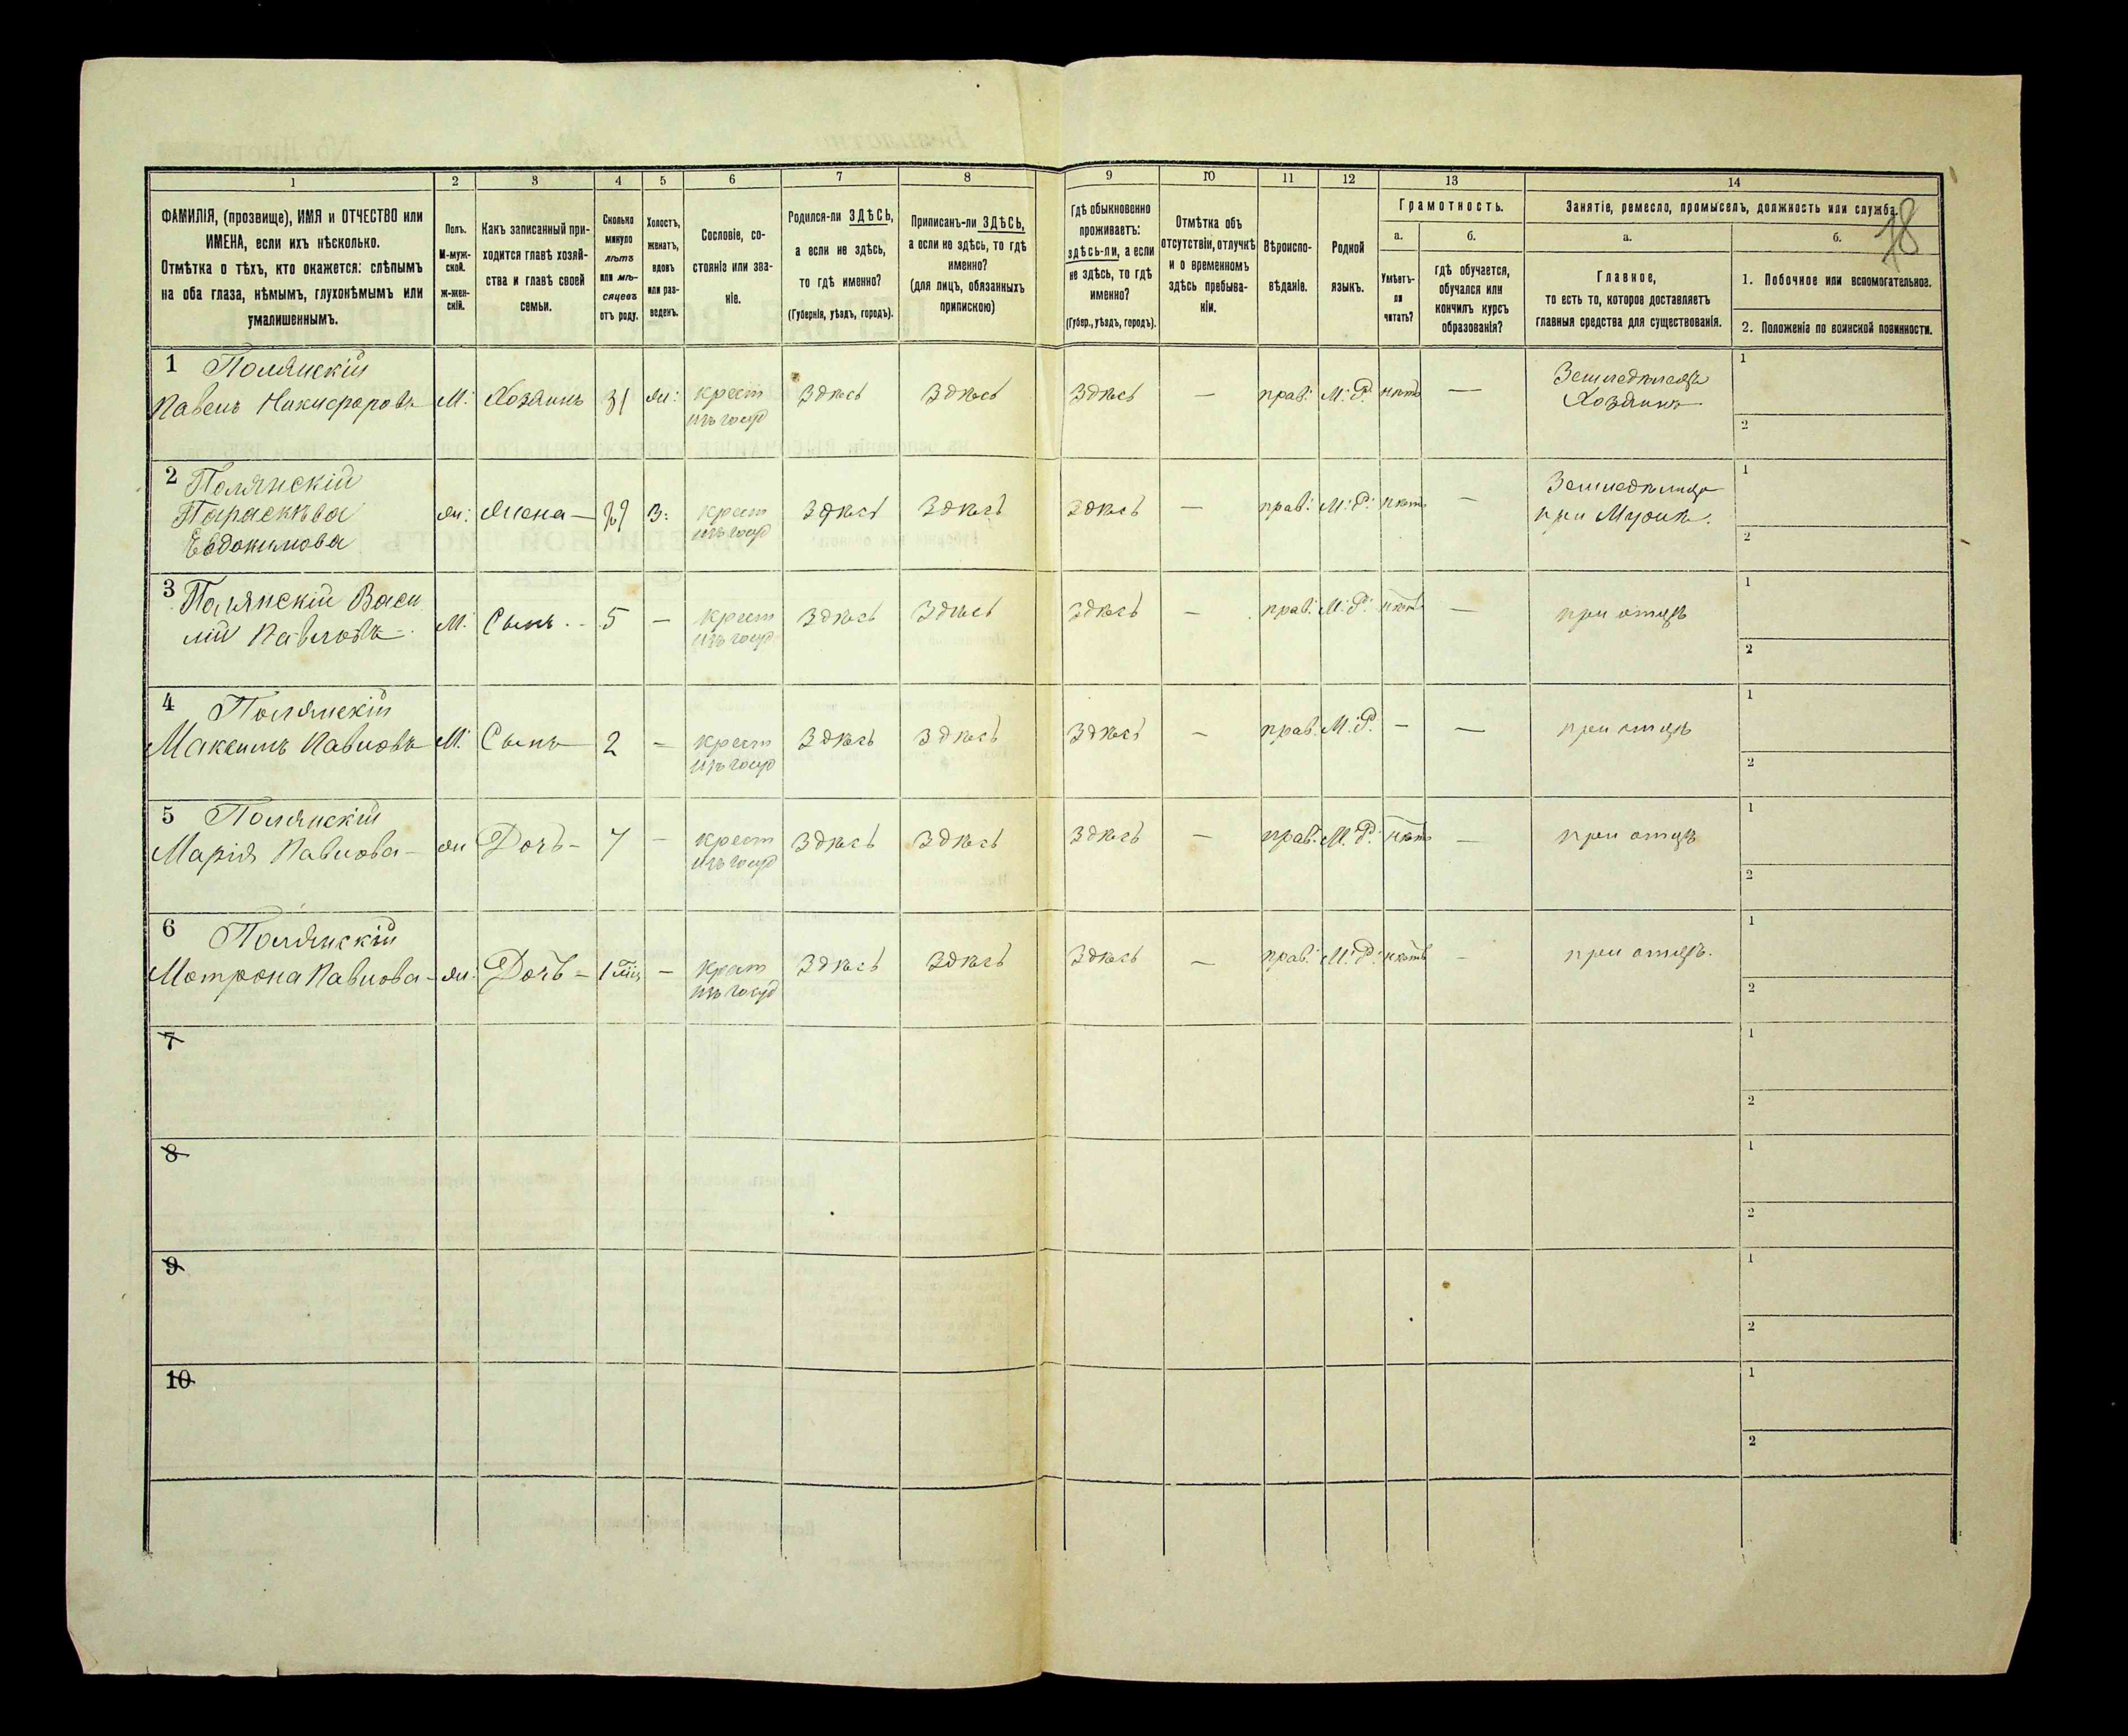 78
1 2 3 4 5 6 7 8 9 10 11 12 13 14
ФАМИЛІЯ, (прозвище), ИМЯ и ОТЧЕСТВО или
ИМЕНА, если ихъ нѣсколько.
Отмѣтка о тѣхъ, кто окажется: слѣпымъ
на оба глаза, нѣмымъ, глухонѣмымъ или
умалишеннымъ.
Полъ.
М-муж-
ской.
ж-жен-
скій.
Какъ записанный при-
ходится главѣ хозяй-
ства и главѣ своей
семьи.
Сколько
минуло
лѣтъ
или мѣ-
сяцевъ
отъ роду.
Холостъ,
женатъ,
вдовъ
или раз-
веденъ.
Сословіе, со-
стояніе или зва-
ніе.
Родился-ли ЗДѢСЬ,
а если не здѣсь,
то гдѣ именно?
(Губернія, уѣздъ, городъ).
Приписанъ-ли ЗДѢСЬ,
а если не здѣсь, то гдѣ
именно?
(для лицъ, обязанныхъ
припискою)
Гдѣ обыкновенно
проживаетъ:
здѣсь-ли, а если
не здѣсь, то гдѣ
именно?
(Губер., уѣздъ, городъ).
Отмѣтка объ
отсутствіи, отлучкѣ
и о временномъ
здѣсь пребыва-
ніи.
Вѣроиспо-
вѣданіе.
Родной
языкъ.
Грамотность.
а.
Умѣетъ-
ли
читать?
б.
гдѣ обучается,
обучался или
кончилъ курсъ
образованія?
Занятіе, ремесло, промыселъ, должность или служба.
а.
Главное,
то есть то, которое доставляетъ
главныя средства для существованія.
б.
1. Побочное или вспомогательное.
2. Положеніе по воинской повинности.
1 Полянскій
Павелъ Никифоровъ М: Хозяинъ 31 ж: крест Здѣсь Здѣсь Здѣсь — прав: М:Р: нѣтъ — Земледѣлецъ 1
изъ госуд Хозяинъ 2
2 Полянскій
Параскѣва ж: жена — 29 З: крест Здѣсь Здѣсь Здѣсь — прав: М:Р: нѣтъ — Земледѣлица 1
Евдокимова изъ госуд при Мужѣ. 2
3 Полянскій Васи
лій Павловъ М: Сынъ 5 — крест Здѣсь Здѣсь Здѣсь — прав: М:Р: нѣтъ — при отцѣ 1
изъ госуд 2
4 Полянскій
Максимъ Павловъ М: Сынъ 2 — крест Здѣсь Здѣсь Здѣсь — прав. М:Р. — — при отцѣ 1
изъ госуд 2
5 Полянскій
Марія Павлова — ж Дочь — 7 — крест Здѣсь Здѣсь Здѣсь — прав: М:Р: нѣтъ — при отцѣ 1
изъ госуд 2
6 Полянскій
Мотрона Павлова — ж: Дочь — 1 мѣс — крест Здѣсь Здѣсь Здѣсь — прав: М:Р: нѣтъ — при отцѣ. 1
изъ госуд 2
7 1
2
8 1
2
9 1
2
10 1
2